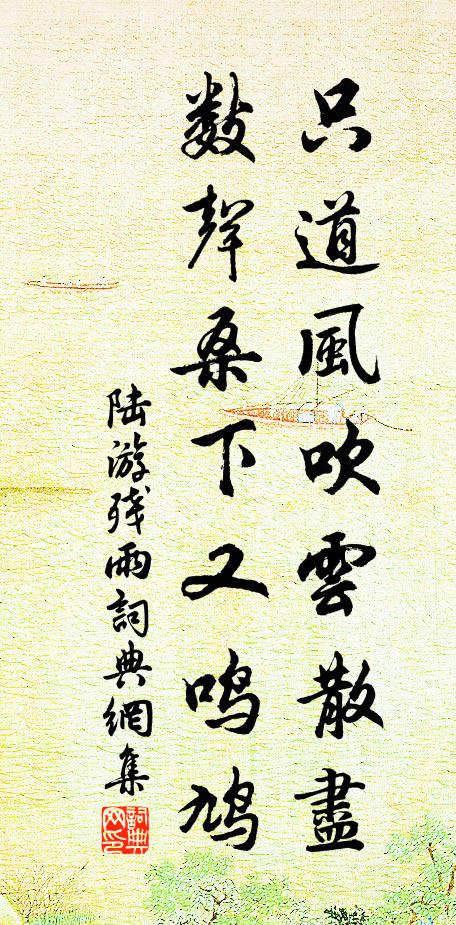 只道風吹雲散盡
數聲桑下又鳴鳩
陸游殘雨詞典網集
詞典網印